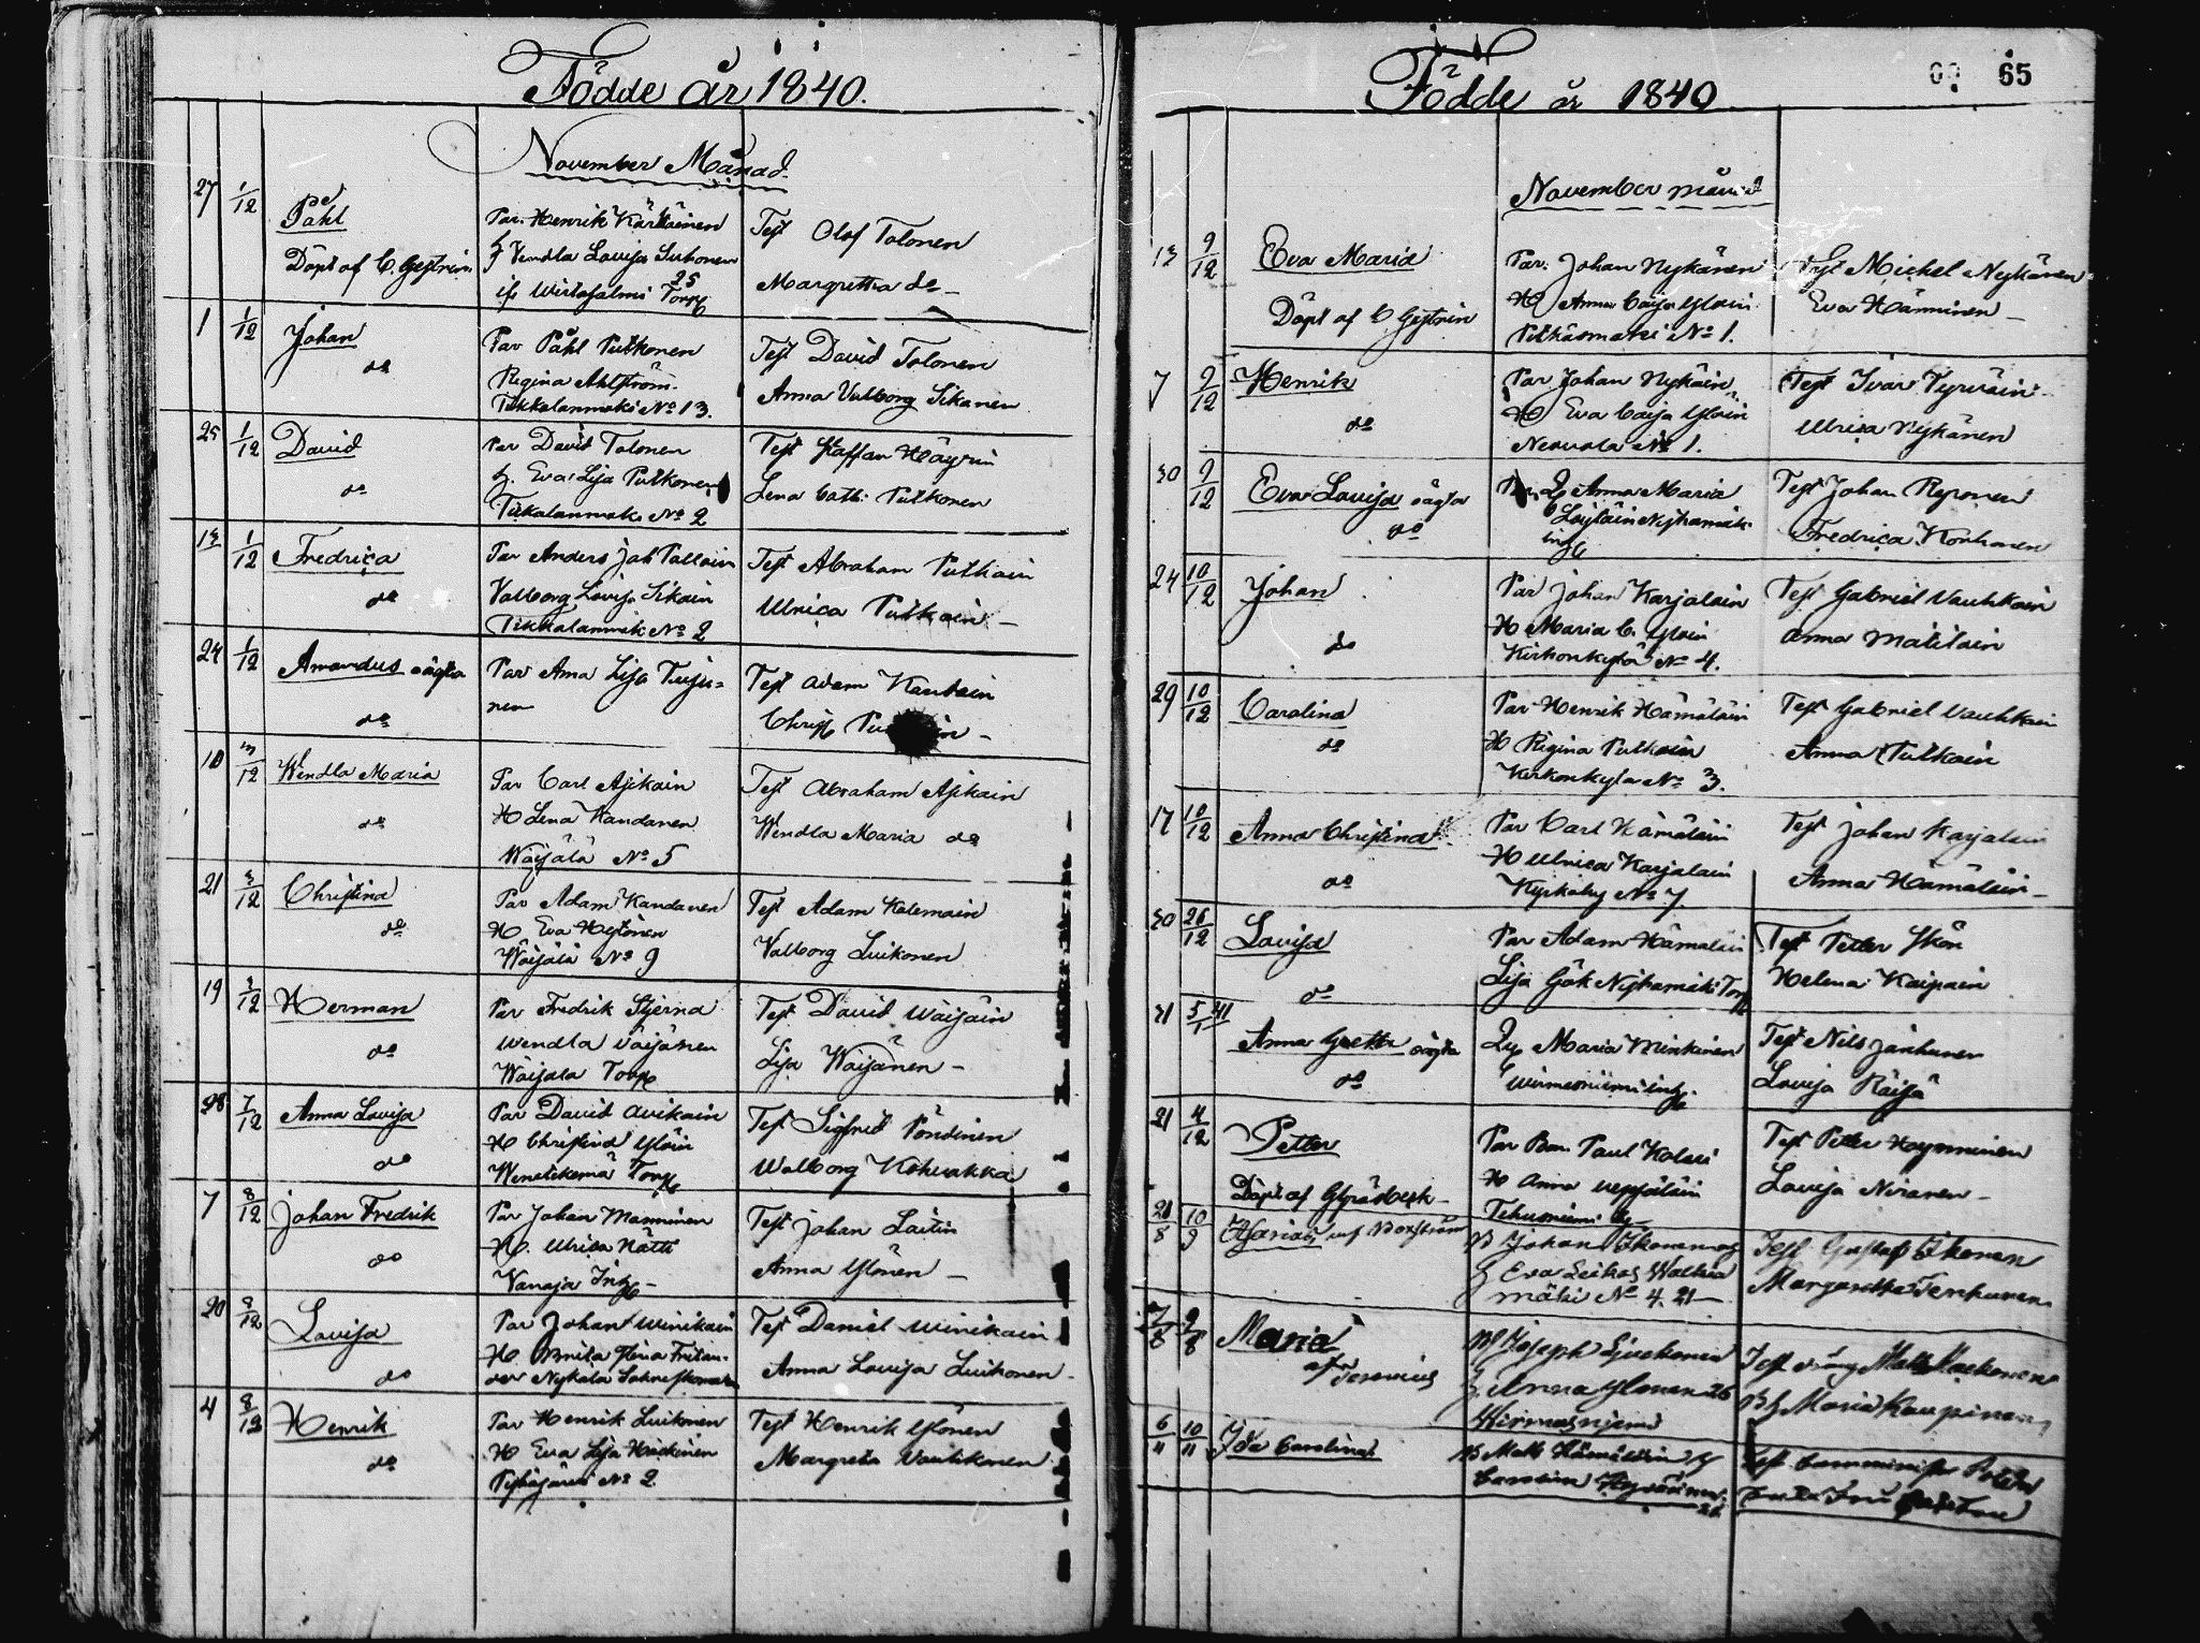 Födde år 1840.
November Månad.
27 1/12 Påhl
Döpt af C. Gestrin
Par. Henrik Kärkäinen
H Vendla Lovisa Suhonen
25
Torp
Test Olof Tolonen
Margretha do
1 1/12 Johan
do
Par Påhl Putkonen
Regina Ahlström.
Tikkalanmäki No 13.
Test David Tolonen
Anna Valborg Sikanen
25 1/12 David
do
Par David Tolonen
H. Eva Lisa Putkonen
Tikkalanmäki No 2
Test Staffan Häyrin
Lena Cath: Putkonen
13 1/12 Fredrica
do
Par Anders Joh
Valborg Lovisa Sikain
Tikkalanmäk No 2
Test Abraham Putkain
Ulrica Putkain
24 1/12 Amandus oägta
do
Par Anna Lisa Turju=
nen
Test Adam Kautain
Christ
10 3/12 Wendla Maria
do
Par Carl Asikain
H Lena Kandanen
Wäijälä No 5
Test Abraham Asikain
Wendla Maria do
21 3/12 Christina
do
Par Adam Kandanen
H Eva Hytönen
Wäijälä No 9
Test Adam Kolemain
Valborg Luikonen
19 3/12 Herman
do
Par Fredrik Stjerna
Wendla Väijänen
Wäijälä Torp
Test David Wäijäin
Lisa Wäijänen
28 7/12 Anna Lovisa
do
Par David Avikain
H Christina Ylöin
Torp
Test Sigfrid Pöndinen
Walborg Kohvakka
7 8/12 Johan Fredrik
do
Par Johan Manninen
H. Ulrica Nätti
Vanaja Inh
Test Johan Laitin
Anna Ylönen
20 8/12 Lovisa
do
Par Johan Winikain
H Brita Stina
Test Daniel Winikain
Anna Lovisa Luikonen
4 8/12 Henrik
do
Par Henrik Luikonen
H Eva Lisa Häckinen
No 2
Test Henrik Ylönen
Margreta Vauhkonen
Födde år 1840
65
November månad
13 9/12 Eva Maria
Döpt af C Gestrin
Par. Johan Nykänen
H Anna Caisa Ylöin
Pitkäsmäki No 1.
Test Michel Nykänen
Eva Hänninen
7 9/12 Henrik
do
Par Johan Nykäin
H Eva Caisa Ylöin
No 1.
Test Ivar Tyrväin
Ulrica Nykänen
30 9/12 Eva Lovisa oägta
do
Anna Maria
Inh
Test Johan Reponen
Fredrica Korhonen
24 10/12 Johan
do
Par Johan Karjalain
H Maria C. Ylöin
Kirkonkylä No 4.
Test Gabriel Vauhkain
Anna Matilain
29 10/12 Carolina
do
Par Henrik Hämäläin
H Regina Putkain
Kirkonkylä No 3.
Test Gabriel Vauhkain
Anna Putkain
17 10/12 Anna Christina
do
Par Carl Hämäläin
H Ulrica Karjalain
Kyrkoby No 7
Test Johan Karjalain
Anna Hämäläin
30 26/12 Lovisa
do
Par Adam Hämäläin
Lisa Gök Torp
Test Petter Skön
Helena Kaipain
5/1 41
Anna Gretta oägta
do
Maria Minkinen
Inh
Test Nils Janhunen
Lovisa Räisä
21 4/12 Petter
Döpt af
Par Bon. Paul Kolari
H Anna Vepsäläin
Test Petter Hoyuninen
Lovisa Niranen
21/8 10/9 af Boxström
Johan Ikonen og
H Eva
mäki No 4. 21
Test Gustaf Ikonen
Margaretha Tenhunen
7/8 9/8 Maria
af
Joseph
H. Anna Ylönen 26
Test dräng Matts
Maria Kaupinen
6/11 10/11 Ida Carolina
B Matts Hämäläin
Carolina